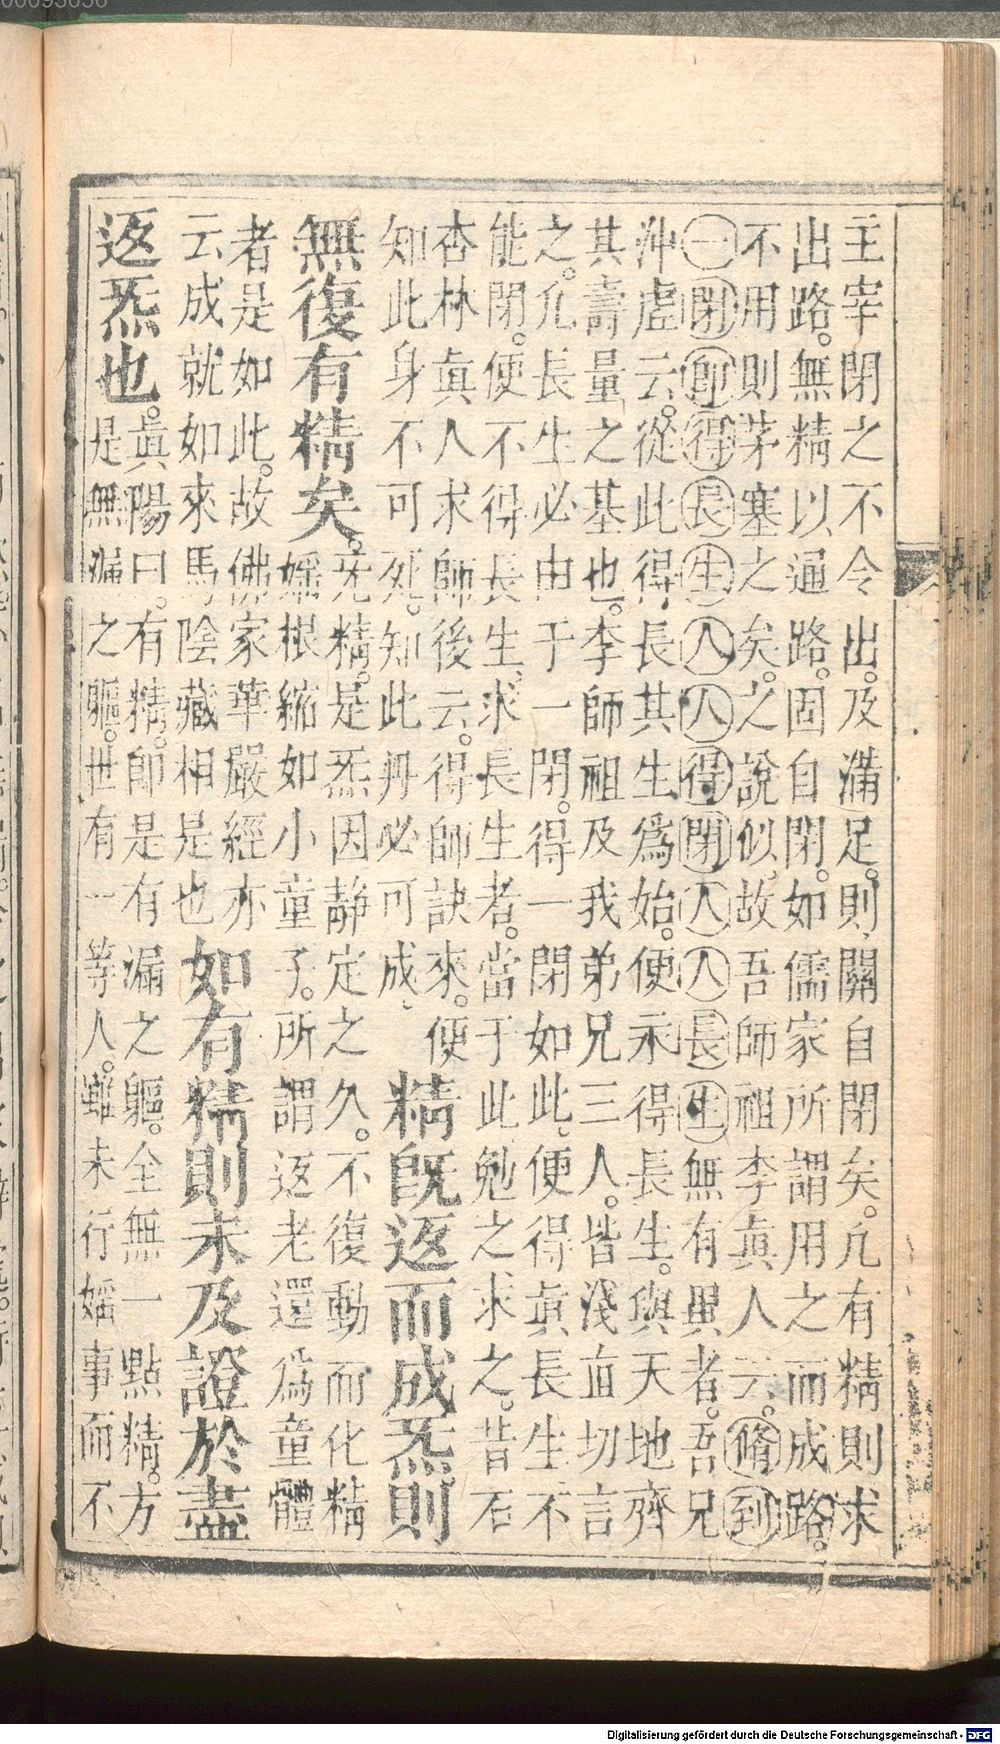 主宰閉之不令出。及滿足。則關自閉矣。凢有精則求
出路。無精以通路。固自閉。如儒家所謂用之而成路。
不用則茅塞之矣。之說似。故吾師祖李真人云。脩到
一閉卽得長生人人得閉人人長生無有異者。吾兄
沖虛云。從此得長其生爲始。便永得長生。與天地齊
其壽量之基也。李師祖及我弟兄三人。皆淺直切言
之。凢長生必由于一閉。得一閉如此、便得眞長生不
能閉。便不得長生、求長生者。當于此勉之求之。昔石
杏林眞人求師後云。得師訣來。便
知此身不可死。知此丹必可成、
精旣返而成炁。則
無復有精矣。
旡精。是炁因靜定之久。不復動而化精
婬根縮如小童子。所謂返老還爲童體
者是如此。故佛家華嚴經亦
云成就如來馬陰藏相是也
如有精則未及證於盡
返炁也。
眞陽曰。有精。卽是有漏之軀。全無一點精。方
是無漏之軀。世有一等人。雖未行婬事而不
Digitalisierung gefördert durch die Deutsche Forschungsgemeinschaft - DFG